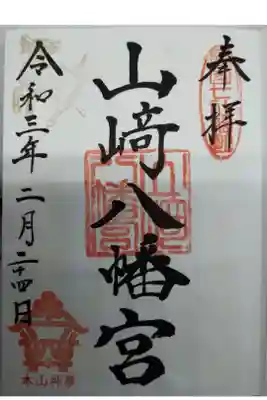 奉拝
山﨑八幡宮
令和三年二月二十四日